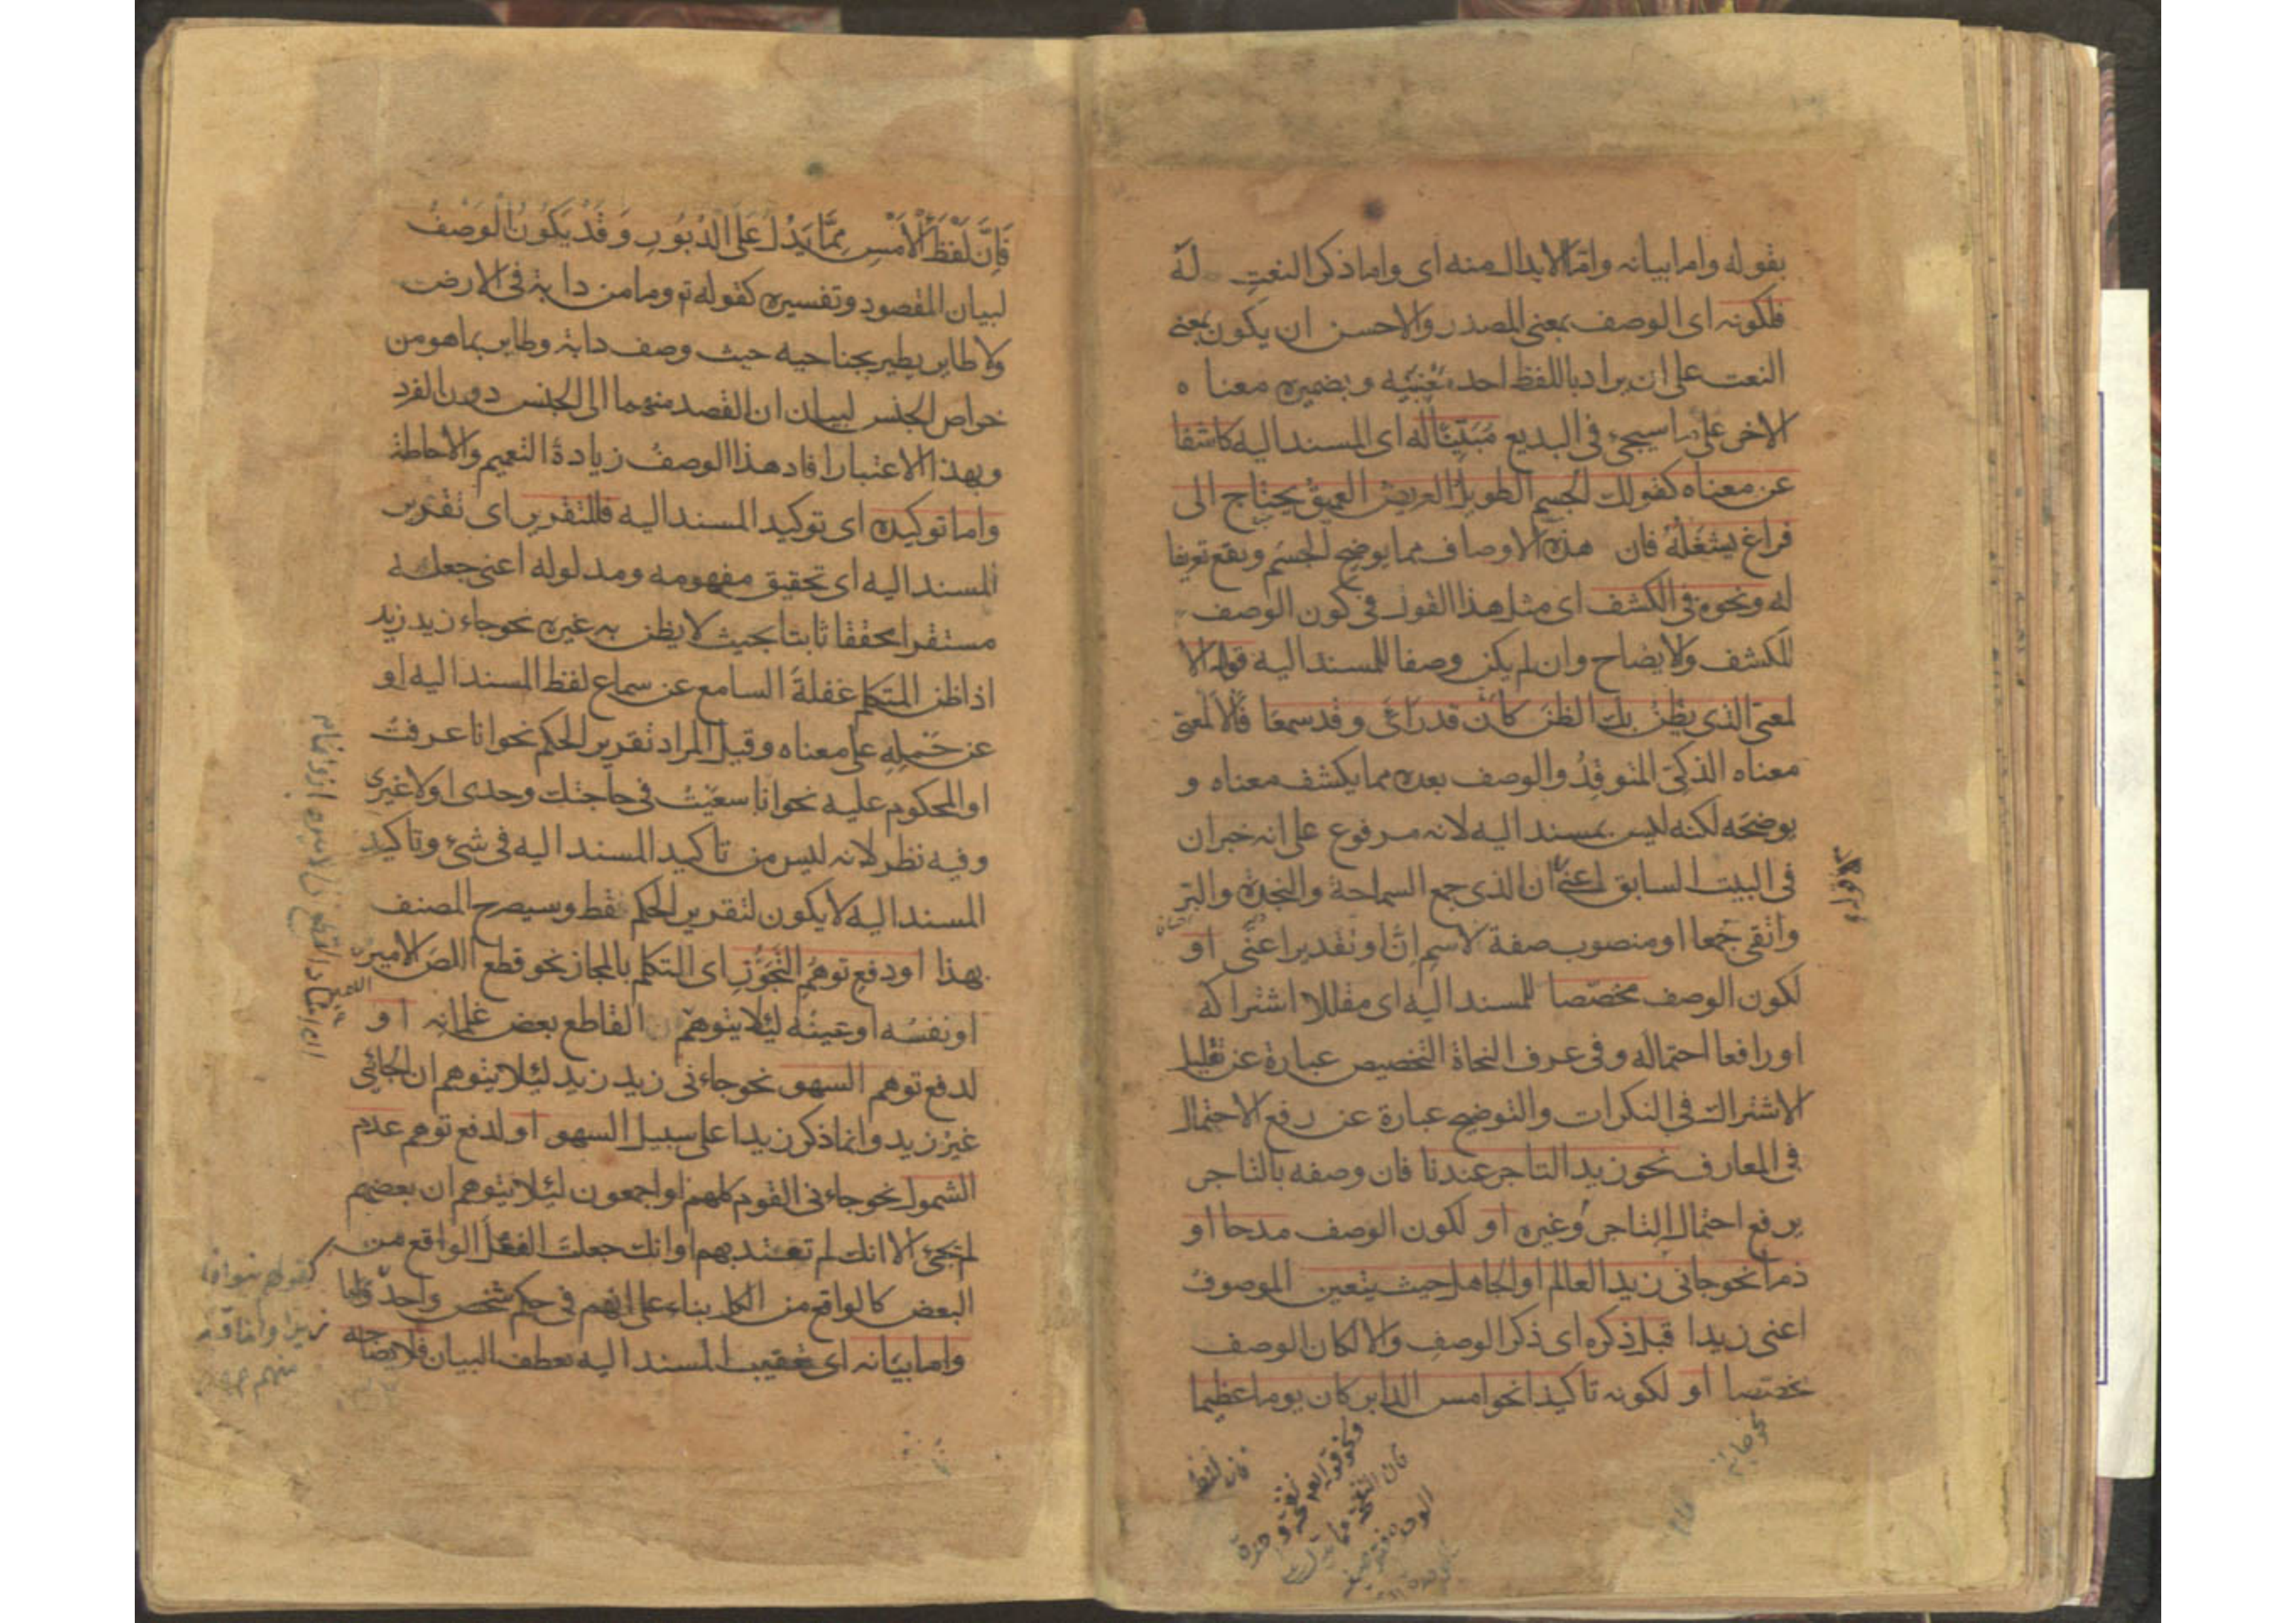 بقوله واما بيانه واما الابدال منه اى واما ذكر النعت له
فلكونه اى الوصف بمعنى المصدر والاحسن ان يكون بمعنى
النعت على ان يراد باللفظ احد معنييه وبضميره معناه
الاخر على ما سيجيء فى البديع مُبَيّنًا له اى المسند اليه كاشفا
عن معناه كقولك الجسم الطويل العريض العميق يحتاج الى
فراغ يشغَلُهُ فان هذه الاوصاف مما يوضح الجسم ويقع تعريفا
له ونحوه فى الكشف اى مثل هذا القول فى كون الوصف
للكشف ولايضاح وان لم يكن وصفا للمسند اليه قوله الا
لمعى الذى يظن بك الظن كأن قد رأى وقد سمعا فالالمعى
معناه الذكى المتوقِدُ والوصف بعده مما يكشف معناه و
يوضحَه لكنه ليس بمسند اليه لانه مرفوع على انه خبر ان
فى البيت السابق اعنى ان الذى جمع السماحة والنجدة والبر
واتقى جَمعا او منصوب صفة لاسم ان او تقدير اعنى او
لكون الوصف مخصّصا للمسند اليه اى مقللا اشتراكه
او رافعا احتماله وفى عرف النحاة التخصيص عبارة عن تقليل
الاشتراك فى النكرات والتوضيح عبارة عن رفع الاحتمال
فى المعارف نحو زيد التاجر عندنا فان وصفه بالتاجر
يرفع احتمال التاجر وغيره او لكون الوصف مدحا او
ذما نحو جانى زيد العالم او الجاهل حيث يتعين الموصوف
اعنى زيدا قبل ذكره اى ذكر الوصف والا لكان الوصف
مخصّصا او لكونه تاكيدا نحو امس الدابر كان يوما عظيما
فان لفظ
فَاِنَّ لَفْظَ الْاَمْسِ مِمَّا يَدُلُّ عَلَى الدُّبُورِ وَقَدْ يَكُونُ الْوَصْفُ
لبيان المقصود وتفسيره كقوله تم وما من دابة فى الارض
ولا طاير يطير بجناحيه حيث وصف دابة وطاير بما هو من
خواص الجنس لبيان ان القصد منهما الى الجنس دون الفرد
وبهذا الاعتبار افاد هذا الوصفُ زيادة التعميم والاحاطة
واما توكيده اى توكيد المسند اليه فللتقرير اى تقرير
المسند اليه اى تحقيق مفهومه ومدلوله اعنى جعله
مستقرا محققا ثابتا بحيث لا يظن به غيره نحو جاء زيد زيد
اذا ظن المتكلم غفلة السامع عن سماع لفظ المسند اليه او
عن حَملِهِ على معناه وقيل المراد تقرير الحكم نحو انا عرفت
او المحكوم عليه نحو انا سعَيْتُ فى حاجتك وحدى او لا غيرى
وفيه نظر لانه ليس من تاكيد المسند اليه فى شئ وتاكيد
المسند اليه لا يكون لتقرير الحكم فقط وسيصرح المصنف
بهذا او دفع توهم التَجَوُّزِ اى التكلم بالمجاز نحو قطع اللصّ الامير
او نفسُه او عينُه ليئلا يتوهّم ان القاطع بعض غلمانه او
لدفع توهم السهو نحو جاءنى زيد زيد ليئلا يتوهم ان الجائى
غير زيد وانما ذكر زيدا على سبيل السهو او لدفع توهم عدم
الشمول نحو جاءنى القوم كلهم او اجمعون ليئلا يتوهم ان بعضهم
لم يجئ الا انك لم تعتد بهم او انك جعلت الفعل الواقع من
البعض كالواقع من الكل بناء على انهم فى حكم شخص واحد
واما بيَانه اى تعقيب المسند اليه بعطف البيان فلايضاحه